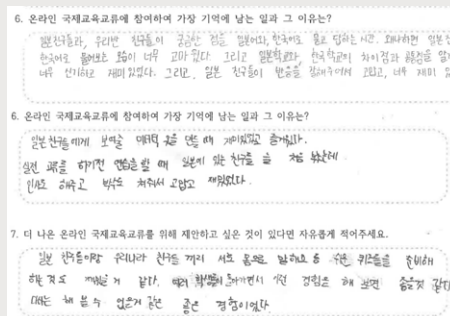 6. 온라인 국제교육교류에 참여하여 가장 기억에 남는 일과 그 이유는?
일본친구들과, 우리반 친구들이 궁금한 점을 일본어와, 한국어로 묻고 답하는 시간. 왜냐하면 일본
한국어로 물어보는 모습이 너무 고마웠다. 그리고 일본학교와, 한국학교의 차이점과 공통점을
너무 신기하고 재미있었다. 그리고, 일본 친구들이 반응을 잘해주어서 고맙고, 너무 재미
6. 온라인 국제교육교류에 참여하여 가장 기억에 남는 일과 그 이유는?
일본 친구들에게 보여줄 을 만들 때 재미있었고 즐거웠다.
실전 교류를 하기전 연습을 할 때 일본에 있는 친구들을 처음 봤는데
인사도 해주고 박수도 쳐줘서 고맙고 재밌었다.
7. 더 나은 온라인 국제교육교류를 위해 제안하고 싶은 것이 있다면 자유롭게 적어주세요.
일본 친구들이랑 우리나라 친구들 끼리 서로 몸으로 말해요 등 퀴즈들을 준비해
하는 것도 재밌을 거 같다. 돌아가면서 경험을 해 보면 좋을것 같다
해 볼 수 없을거 같은 좋은 경험이었다